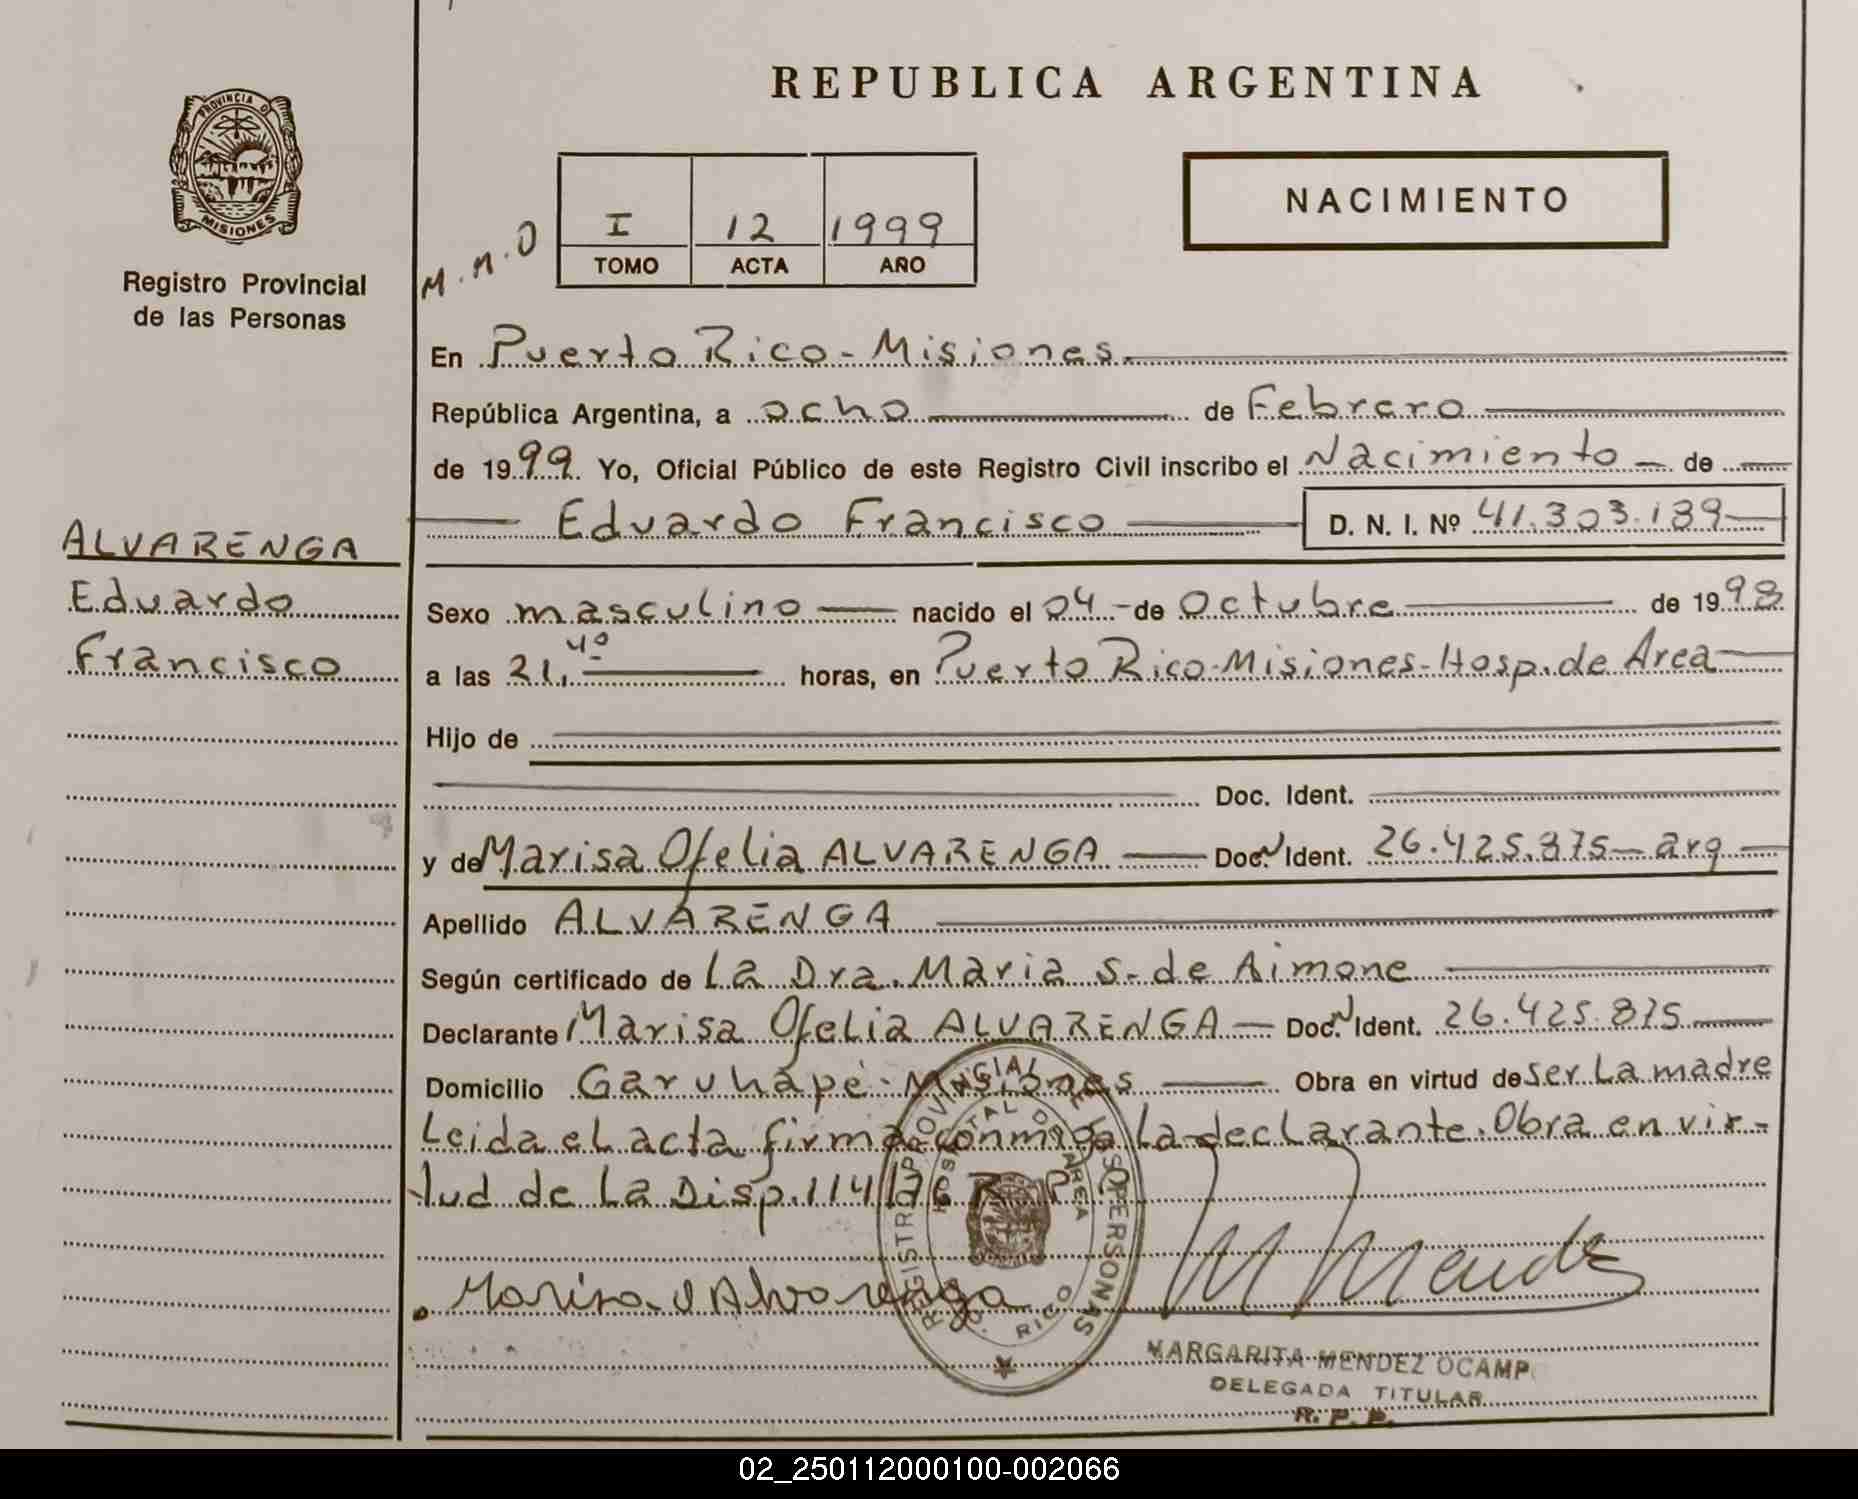 REPUBLICA ARGENTINA
PROVINCIA D
MISIONES
Registro Provincial
de las Personas
M.M.O
I 12 1999
TOMO ACTA AÑO
NACIMIENTO
En Puerto Rico - Misiones.
República Argentina, a ocho de Febrero
de 1999. Yo, Oficial Público de este Registro Civil inscribo el Nacimiento - de
Eduardo Francisco D. N. I. Nº 41.303.189
ALVARENGA
Eduardo
Francisco
Sexo masculino nacido el 04 - de Octubre de 1998
a las 21,40 horas, en Puerto Rico-Misiones-Hosp. de Area
Hijo de
Doc. Ident.
y de Marisa Ofelia ALVARENGA Doc. N Ident. 26.425.875 - arg
Apellido ALVARENGA
Según certificado de La Dra. Maria S. de Aimone
Declarante Marisa Ofelia ALVARENGA - Doc. N Ident. 26.425.875
Domicilio Garuhapé - Misiones Obra en virtud de ser La madre
Leida el acta firma conmigo La declarante. Obra en vir-
tud de La Disp. 114/76 R P P
REGISTRO PROVINCIAL DE LAS PERSONAS
HOSPITAL DE AREA
RICO
Marisa O Alvarenga
M Mendez
MARGARITA MENDEZ OCAMPO
DELEGADA TITULAR
R. P. P.
02_250112000100-002066